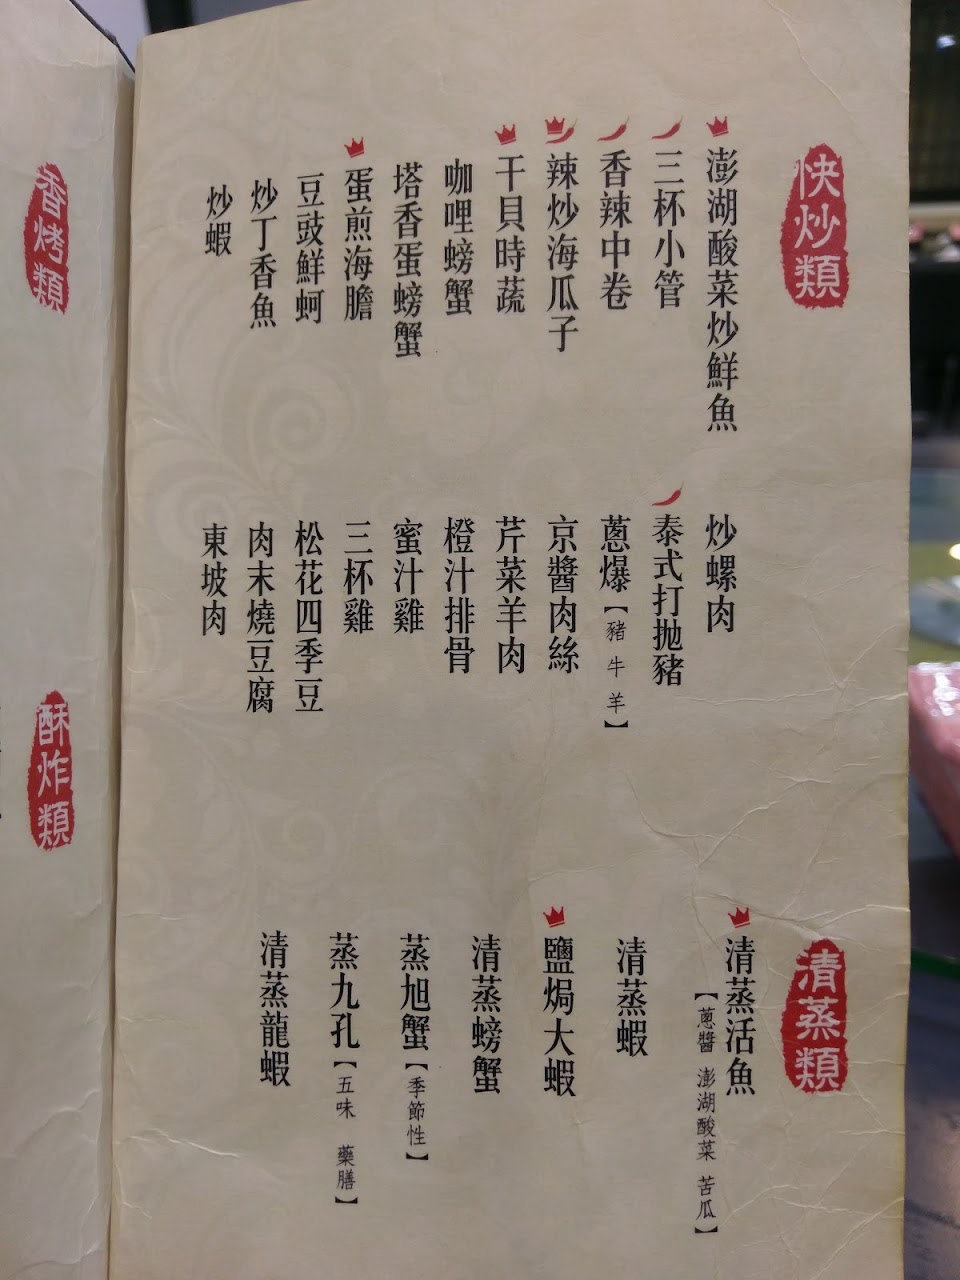 快炒類
澎湖酸菜炒鮮魚
三杯小管
香辣中卷
辣炒海瓜子
干貝時蔬
咖哩螃蟹
塔香蛋螃蟹
蛋煎海膽
豆豉鮮蚵
炒丁香魚
炒蝦
炒螺肉
泰式打拋豬
蔥爆【豬 牛 羊】
京醬肉絲
芹菜羊肉
橙汁排骨
蜜汁雞
三杯雞
松花四季豆
肉末燒豆腐
東坡肉
清蒸類
清蒸活魚
【蔥醬 澎湖酸菜 苦瓜】
清蒸蝦
鹽焗大蝦
清蒸螃蟹
蒸旭蟹【季節性】
蒸九孔【五味 藥膳】
清蒸龍蝦
香烤類
酥炸類